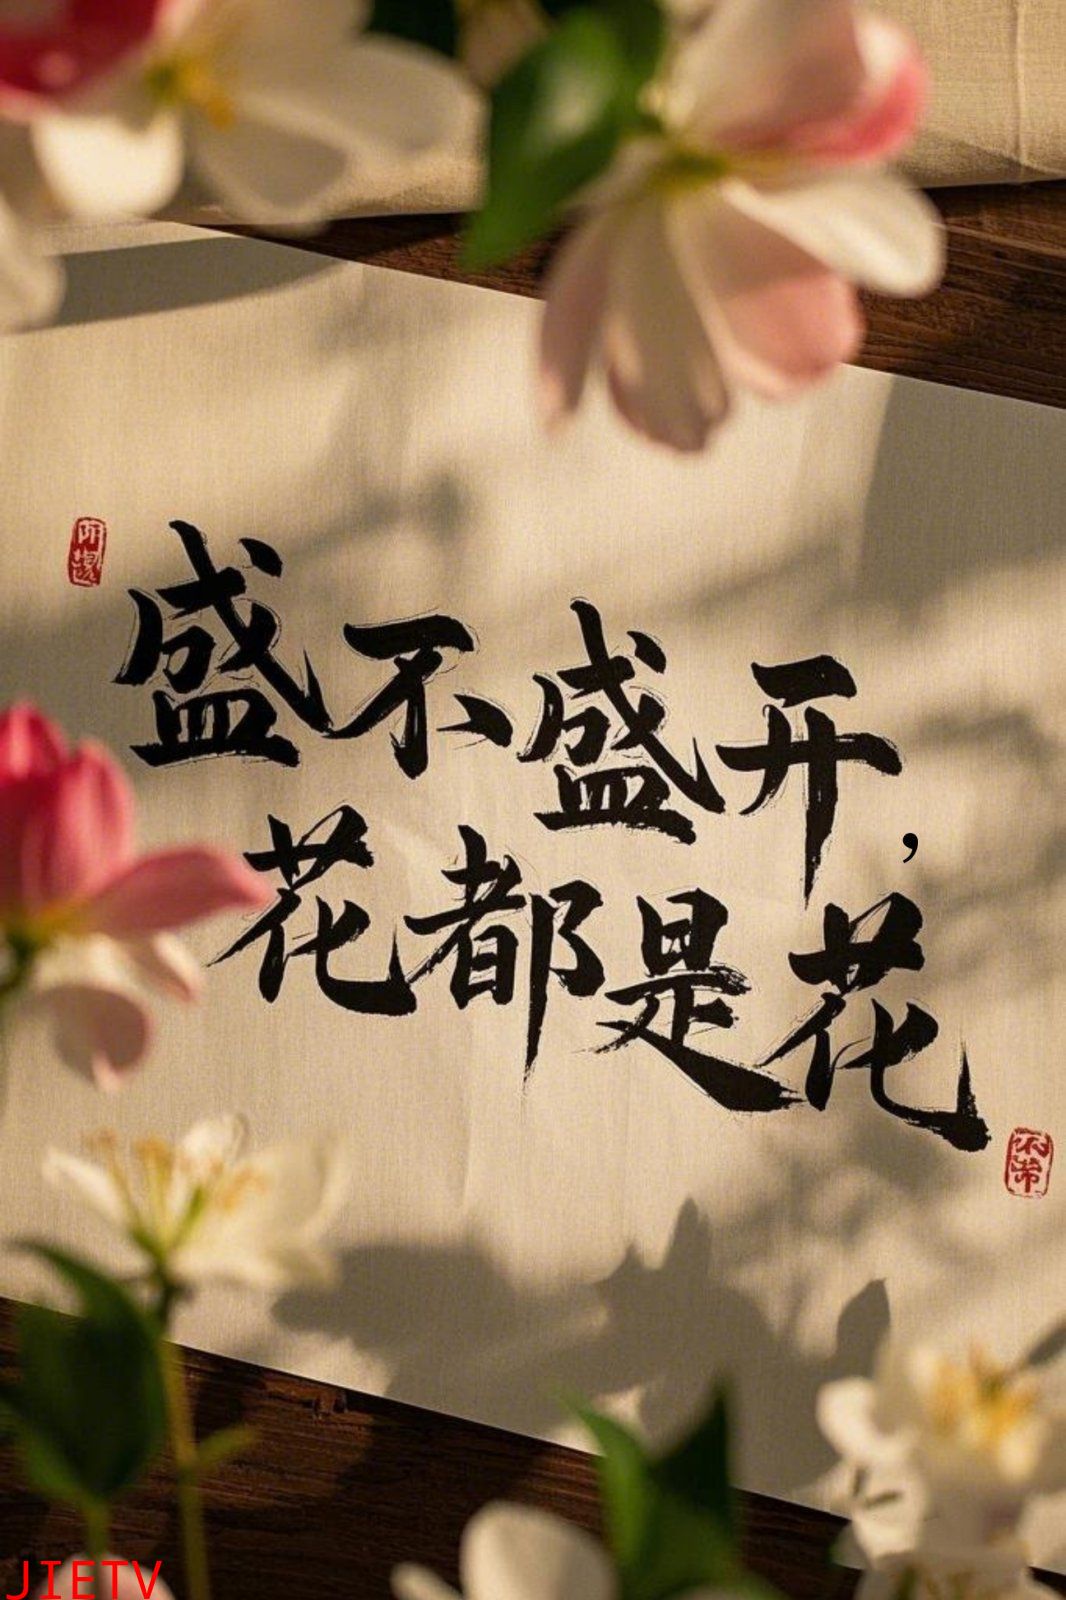 盛不盛开，
花都是花
JIETV